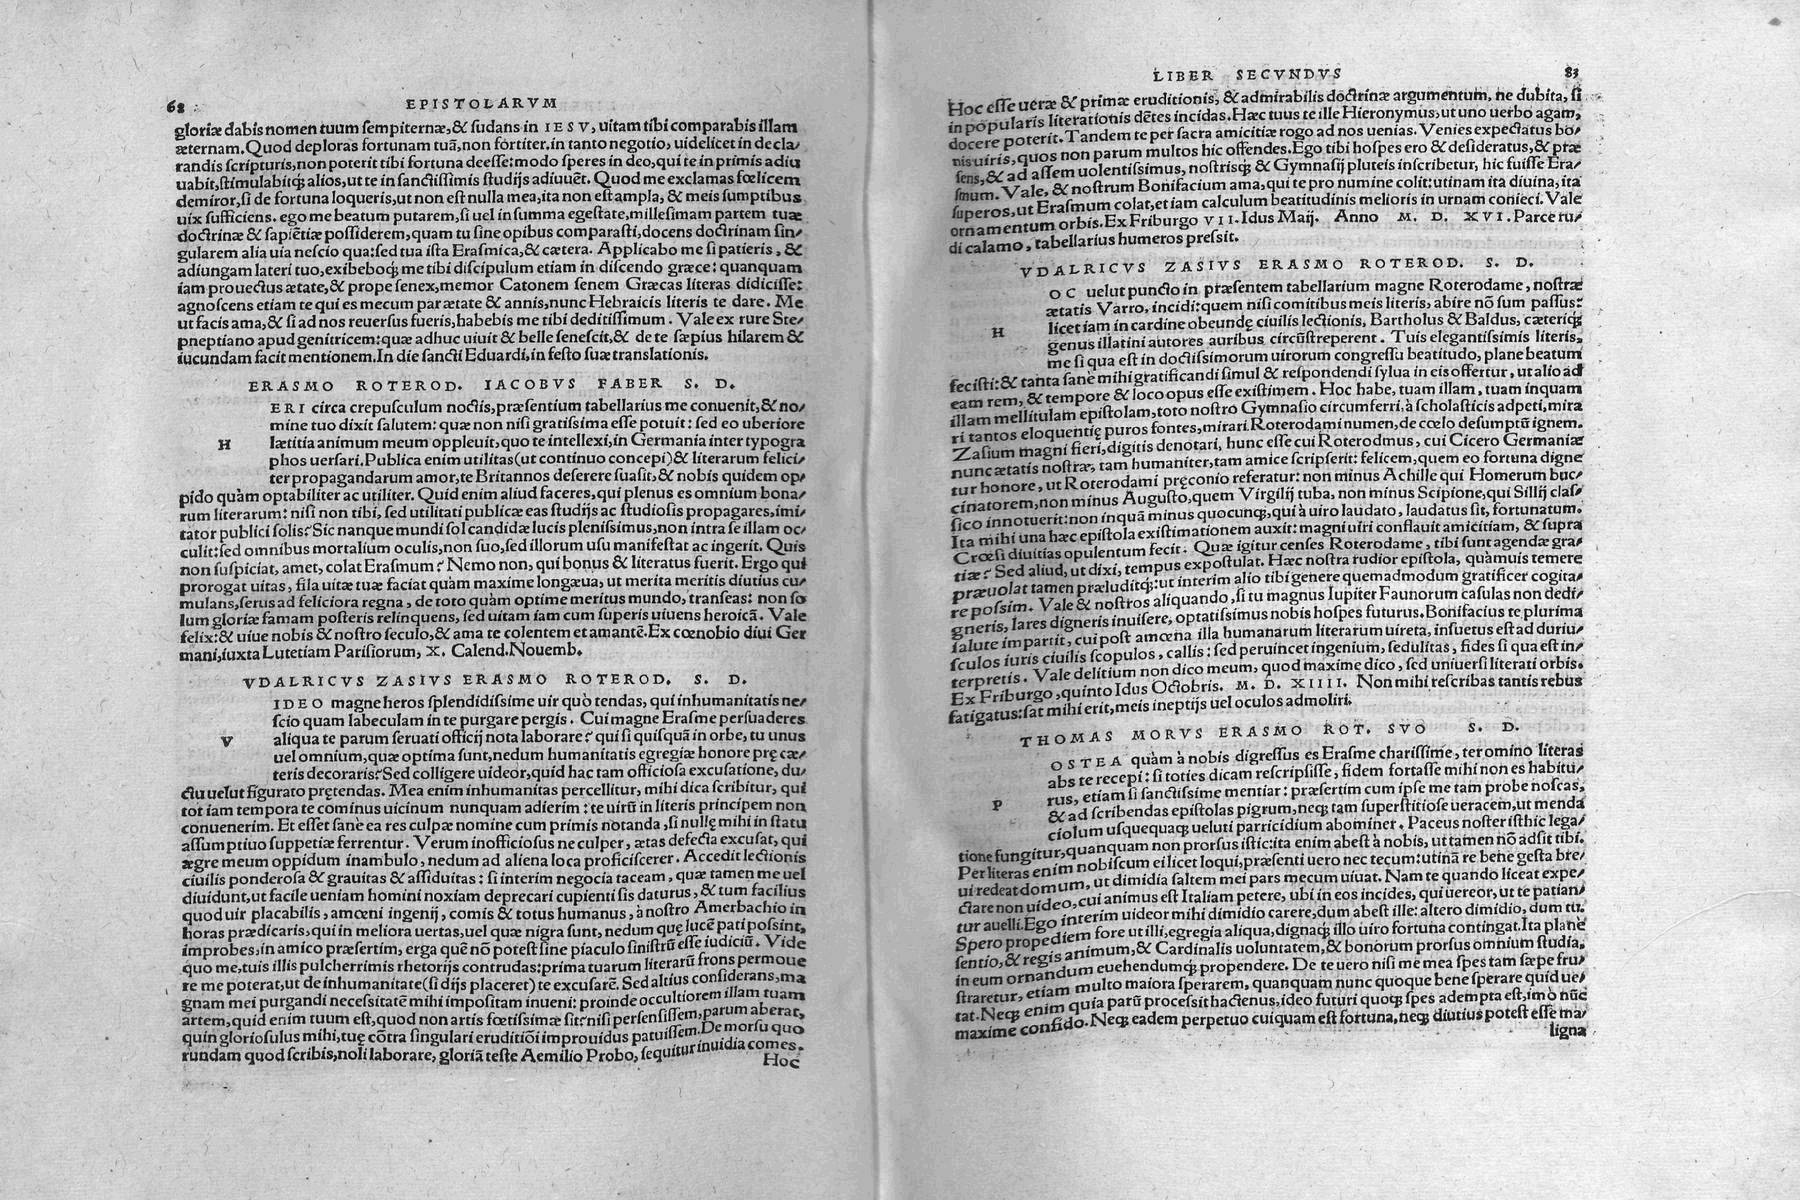 68 EPISTOLARVM
gloriæ dabis nomen tuum ſempiternæ,& ſudans in IESV, uitam tibi comparabis illam
æternam. Quod deploras fortunam tuã, non fortiter. in tanto negotio, uidelicet in decla/
randis ſcripturis, non poterit tibi fortuna deeſſe: modo ſperes in deo, qui te in primis adiu
uabit, ſtimulabitq́ꝫ alios, ut te in ſanctiſſimis ſtudijs adiuuẽt. Quod me exclamas fœlicem
demiror, ſi de fortuna loqueris, ut non eſt nulla mea, ita non eſt ampla, & meis ſumptibus
uix ſufficiens. ego me beatum putarem, ſi uel in ſumma egeſtate, milleſimam partem tuæ
doctrinæ & ſapiẽtiæ poſſiderem, quam tu ſine opibus comparaſti, docens doctrinam ſin/
gularem alia uia neſcio qua: ſed tua iſta Eraſmica, & cætera. Applicabo me ſi patieris, &
adiungam lateri tuo, exibeboq́ꝫ me tibi diſcipulum etiam in diſcendo græce: quanquam
iam prouectus ætate, & prope ſenex, memor Catonem ſenem Græcas literas didiciſſe:
agnoſcens etiam te qui es mecum par ætate & annis, nunc Hebraicis literis te dare. Me
ut facis ama, & ſi ad nos reuerſus fueris, habebis me tibi deditiſſimum. Vale ex rure Ste/
pneptiano apud genitricem: quæ adhuc uiuit & belle ſeneſcit, & de te ſæpius hilarem &
iucundam facit mentionem. In die ſancti Eduardi, in feſto ſuæ translationis.
ERASMO ROTEROD. IACOBVS FABER S. D.
H ERI circa crepuſculum noctis, præſentium tabellarius me conuenit, & no/
mine tuo dixit ſalutem: quæ non niſi gratiſſima eſſe potuit: ſed eo uberiore
lætitia animum meum oppleuit, quo te intellexi, in Germania inter typogra
phos uerſari. Publica enim utilitas (ut continuo concepi) & literarum felici/
ter propagandarum amor, te Britannos deſerere ſuaſit, & nobis quidem op/
pido quàm optabiliter ac utiliter. Quid enim aliud faceres, qui plenus es omnium bona/
rum literarum: niſi non tibi, ſed utilitati publicæ eas ſtudijs ac ſtudioſis propagares, imi/
tator publici ſolis? Sic nanque mundi ſol candidæ lucis pleniſſimus, non intra ſe illam oc/
culit: ſed omnibus mortalium oculis, non ſuo, ſed illorum uſu manifeſtat ac ingerit. Quis
non ſuſpiciat, amet, colat Eraſmum? Nemo non, qui bonus & literatus fuerit. Ergo qui
prorogat uitas, fila uitæ tuæ faciat quàm maxime longæua, ut merita meritis diutius cu/
mulans, ſerus ad feliciora regna, de toto quàm optime meritus mundo, tranſeas: non ſo
lum gloriæ famam poſteris relinquens, ſed uitam iam cum ſuperis uiuens heroicã. Vale
felix: & uiue nobis & noſtro ſeculo, & ama te colentem et amantẽ. Ex cœnobio diui Ger
mani, iuxta Lutetiam Pariſiorum, X. Calend. Nouemb.
VDALRICVS ZASIVS ERASMO ROTEROD. S. D.
V IDEO magne heros ſplendidiſſime uir quò tendas, qui inhumanitatis ne/
ſcio quam labeculam in te purgare pergis. Cui magne Eraſme perſuaderes
aliqua te parum ſeruati officij nota laborare? qui ſi quiſquã in orbe, tu unus
uel omnium, quæ optima ſunt, nedum humanitatis egregiæ honore pręcæ/
teris decoraris? Sed colligere uideor, quid hac tam officioſa excuſatione, du/
ctu uelut figurato prętendas. Mea enim inhumanitas percellitur, mihi dica ſcribitur, qui
tot iam tempora te cominus uicinum nunquam adierim: te uirũ in literis principem non
conuenerim. Et eſſet ſanè ea res culpæ nomine cum primis notanda, ſi nullę mihi in ſtatu
aſſumptiuo ſuppetiæ ferrentur. Verum inofficioſus ne culper, ætas defecta excuſat, qui
ægre meum oppidum inambulo, nedum ad aliena loca proficiſcerer. Accedit lectionis
ciuilis ponderoſa & grauitas & aſſiduitas: ſi interim negocia taceam, quæ tamen me uel
diuidunt, ut facile ueniam homini noxiam deprecari cupienti ſis daturus, & tum facilius
quod uir placabilis, amœni ingenij, comis & totus humanus, à noſtro Amerbachio in
horas prædicaris, qui in meliora uertas, uel quæ nigra ſunt, nedum quę lucẽ pati poſſint,
improbes, in amico præſertim, erga quẽ nõ poteſt ſine piaculo ſiniſtrũ eſſe iudiciũ. Vide
quo me, tuis illis pulcherrimis rhetorijs contrudas: prima tuarum literarũ frons permoue
re me poterat, ut de inhumanitate (ſi dijs placeret) te excuſarẽ. Sed altius conſiderans, ma
gnam mei purgandi neceſſitatẽ mihi impoſitam inueni: proinde occultiorem illam tuam
artem, quid enim tuum eſt, quod non artis fœtiſſimæ ſit? niſi perſenſiſſem, parum aberat,
quin glorioſulus mihi, tuę cõtra ſingulari eruditiõi improuidus patuiſſem. De morſu quo
rundam quod ſcribis, noli laborare, gloriã teſte Aemilio Probo, ſequitur inuidia comes.
Hoc
LIBER SECVNDVS 83
Hoc eſſe ueræ & primæ eruditionis, & admirabilis doctrinæ argumentum, ne dubita, ſi
in popularis literationis dẽtes incidas. Hæc tuus te ille Hieronymus, ut uno uerbo agam,
docere poterit. Tandem te per ſacra amicitiæ rogo ad nos uenias. Venies expectatus bo/
nis uiris, quos non parum multos hic offendes. Ego tibi hoſpes ero & deſideratus, & præ
ſens, & ad aſſem uolentiſſimus, noſtrisq́ꝫ & Gymnaſij pluteis inſcribetur, hic fuiſſe Era/
ſmum. Vale, & noſtrum Bonifacium ama, qui te pro numine colit: utinam ita diuina, ita
ſuperos, ut Eraſmum colat, et iam calculum beatitudinis melioris in urnam conieci. Vale
ornamentum orbis. Ex Friburgo VII. Idus Maij. Anno M. D. XVI. Parce ru/
di calamo, tabellarius humeros preſſit.
VDALRICVS ZASIVS ERASMO ROTEROD. S. D.
H OC uelut puncto in præſentem tabellarium magne Roterodame, noſtræ
ætatis Varro, incidi: quem niſi comitibus meis literis, abire nõ ſum paſſus:
licet iam in cardine obeundę ciuilis lectionis, Bartholus & Baldus, cæteriq́ꝫ
genus illatini autores auribus circũſtreperent. Tuis elegantiſſimis literis,
me ſi qua eſt in doctiſſimorum uirorum congreſſu beatitudo, plane beatum
feciſti: & tanta ſanè mihi gratificandi ſimul & reſpondendi ſylua in eis offertur, ut alio ad
eam rem, & tempore & loco opus eſſe exiſtimem. Hoc habe, tuam illam, tuam inquam
illam mellitulam epiſtolam, toto noſtro Gymnaſio circumferri, à ſcholaſticis adpeti, mira
ri tantos eloquentię puros fontes, mirari Roterodami numen, de cœlo deſumptũ ignem.
Zaſium magni fieri, digitis denotari, hunc eſſe cui Roterodmus, cui Cicero Germaniæ
nunc ætatis noſtræ, tam humaniter, tam amice ſcripſerit: felicem, quem eo fortuna digne
tur honore, ut Roterodami pręconio referatur: non minus Achille qui Homerum buc/
cinatorem, non minus Auguſto, quem Virgilij tuba, non minus Scipione, qui Sillij claſ/
ſico innotuerit: non inquã minus quocunq́ꝫ, qui à uiro laudato, laudatus ſit, fortunatum.
Ita mihi una hæc epiſtola exiſtimationem auxit: magni uiri conflauit amicitiam, & ſupra
Crœſi diuitias opulentum fecit. Quæ igitur cenſes Roterodame, tibi ſunt agendæ gra/
tiæ? Sed aliud, ut dixi, tempus expoſtulat. Hæc noſtra rudior epiſtola, quàmuis temere
præuolat tamen præluditq́ꝫ: ut interim alio tibi genere quemadmodum gratificer cogita/
re poſſim. Vale & noſtros aliquando, ſi tu magnus Iupiter Faunorum caſulas non dedi/
gneris, lares digneris inuiſere, optatiſſimus nobis hoſpes futurus. Bonifacius te plurima
ſalute impartit, cui poſt amœna illa humanarum literarum uireta, inſuetus eſt ad duriu/
ſculos iuris ciuilis ſcopulos, callis: ſed peruincet ingenium, ſedulitas, fides ſi qua eſt in/
terpretis. Vale delitium non dico meum, quod maxime dico, ſed uniuerſi literati orbis.
Ex Friburgo, quinto Idus Octobris. M. D. XIIII. Non mihi reſcribas tantis rebus
fatigatus: ſat mihi erit, meis ineptijs uel oculos admoliri.
THOMAS MORVS ERASMO ROT. SVO S. D.
P OSTEA quàm à nobis digreſſus es Eraſme chariſſime, ter omino literas
abs te recepi: ſi toties dicam reſcripſiſſe, fidem fortaſſe mihi non es habitu/
rus, etiam ſi ſanctiſſime mentiar: præſertim cum ipſe me tam probe noſcas,
& ad ſcribendas epiſtolas pigrum, neq́ꝫ tam ſuperſtitioſe ueracem, ut menda
ciolum uſquequaq́ꝫ ueluti parricidium abominer. Paceus noſter iſthic lega/
tione fungitur, quanquam non prorſus iſtic: ita enim abeſt à nobis, ut tamen nõ adſit tibi.
Per literas enim nobiſcum ei licet loqui, præſenti uero nec tecum: utinã re bene geſta bre/
ui redeat domum, ut dimidia ſaltem mei pars mecum uiuat. Nam te quando liceat expe/
ctare non uideo, cui animus eſt Italiam petere, ubi in eos incides, qui uereor, ut te patian/
tur auelli. Ego interim uideor mihi dimidio carere, dum abeſt ille: altero dimidio, dum tu.
Spero propediem fore ut illi, egregia aliqua, dignaq́ꝫ illo uiro fortuna contingat. Ita plane
ſentio, & regis animum, & Cardinalis uoluntatem, & bonorum prorſus omnium ſtudia,
in eum ornandum euehendumq́ꝫ propendere. De te uero niſi me mea ſpes tam ſæpe fru/
ſtraretur, etiam multo maiora ſperarem, quanquam nunc quoque bene ſperare quid ue/
tat. Neq́ꝫ enim quia parũ proceſſit hactenus, ideo futuri quoq́ꝫ ſpes adempta eſt, imò nũc
maxime confido. Neq́ꝫ eadem perpetuo cuiquam eſt fortuna, neq́ꝫ diutius poteſt eſſe ma/
ligna